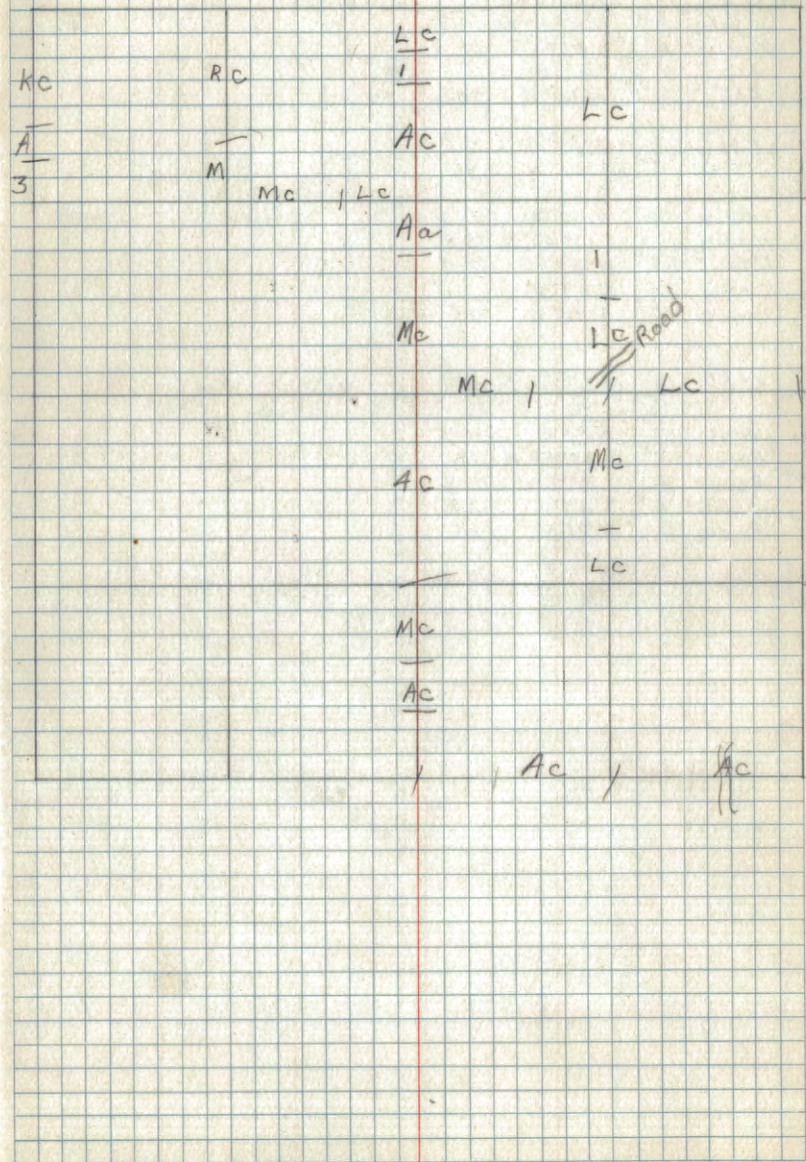 Lc
Kc Rc 1
Lc
A Ac
M
3 Mc Lc
Aa
1
Mc Lc Road
Mc Lc
Mc
Ac
Lc
Mc
Ac
Ac Ac